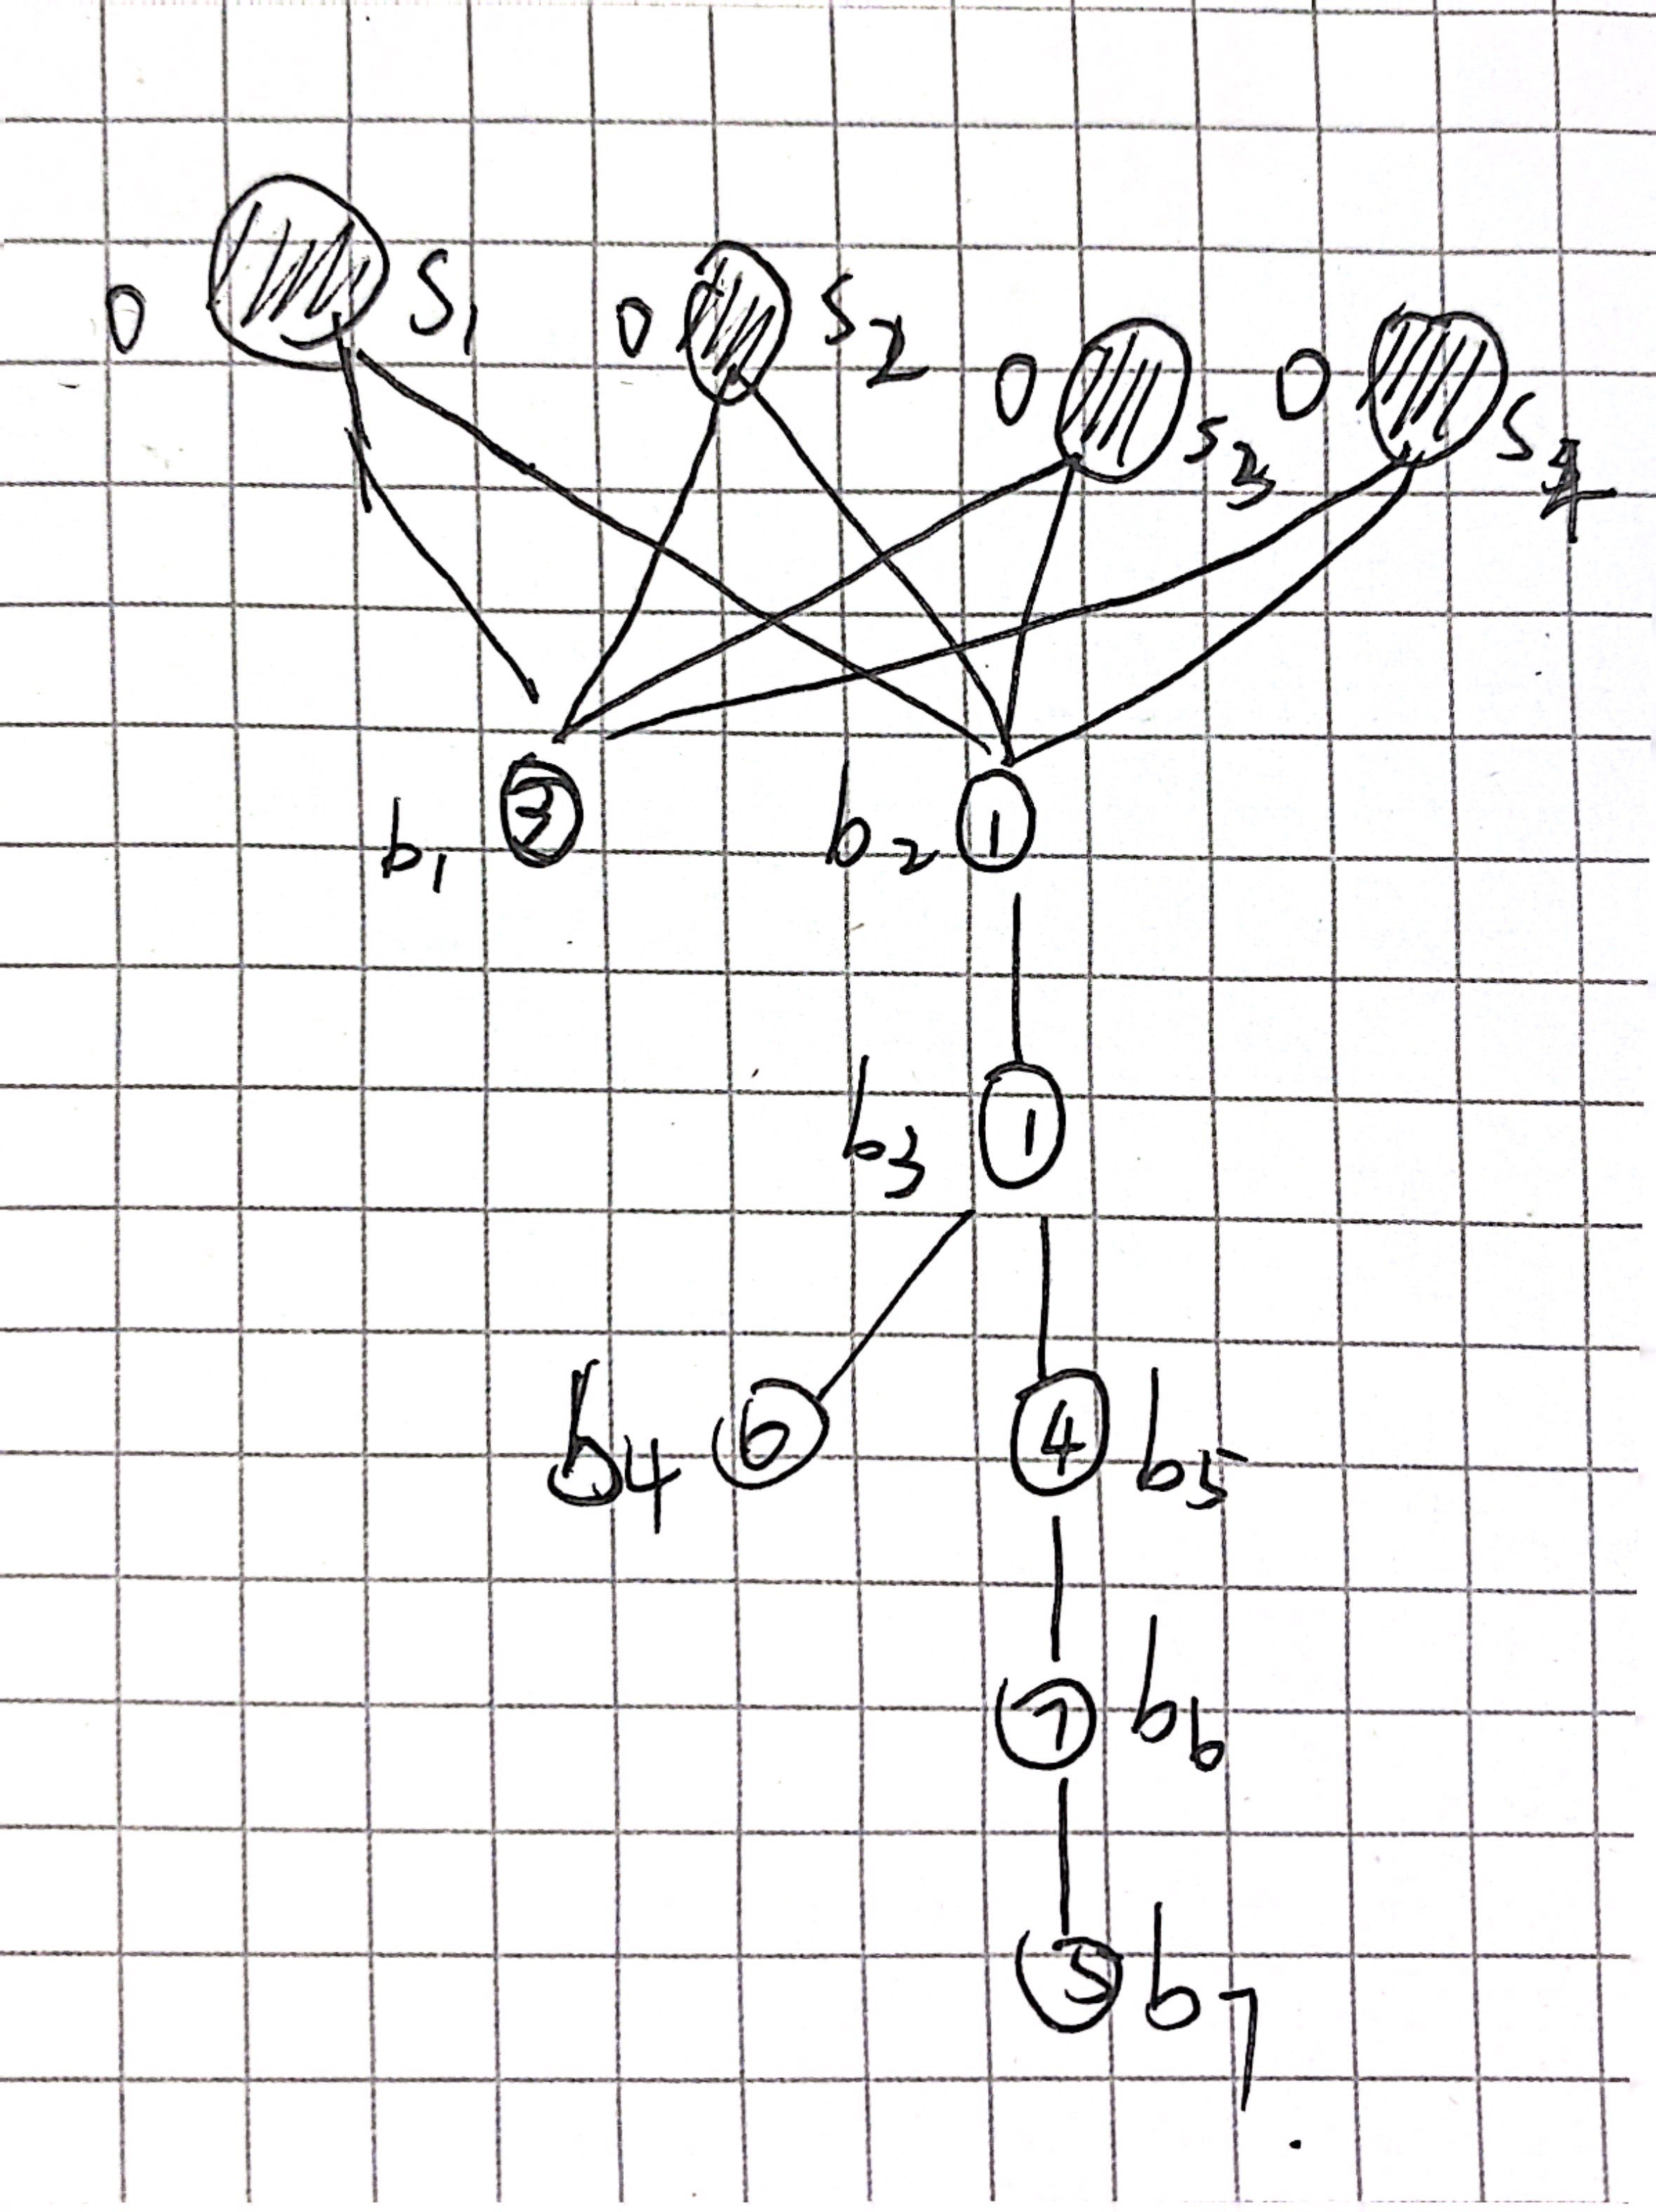 0 S1 0 S2 0 S3 0 S4
b1 3 b2 1
b3 1
b4 6 4 b5
7 b6
5 b7